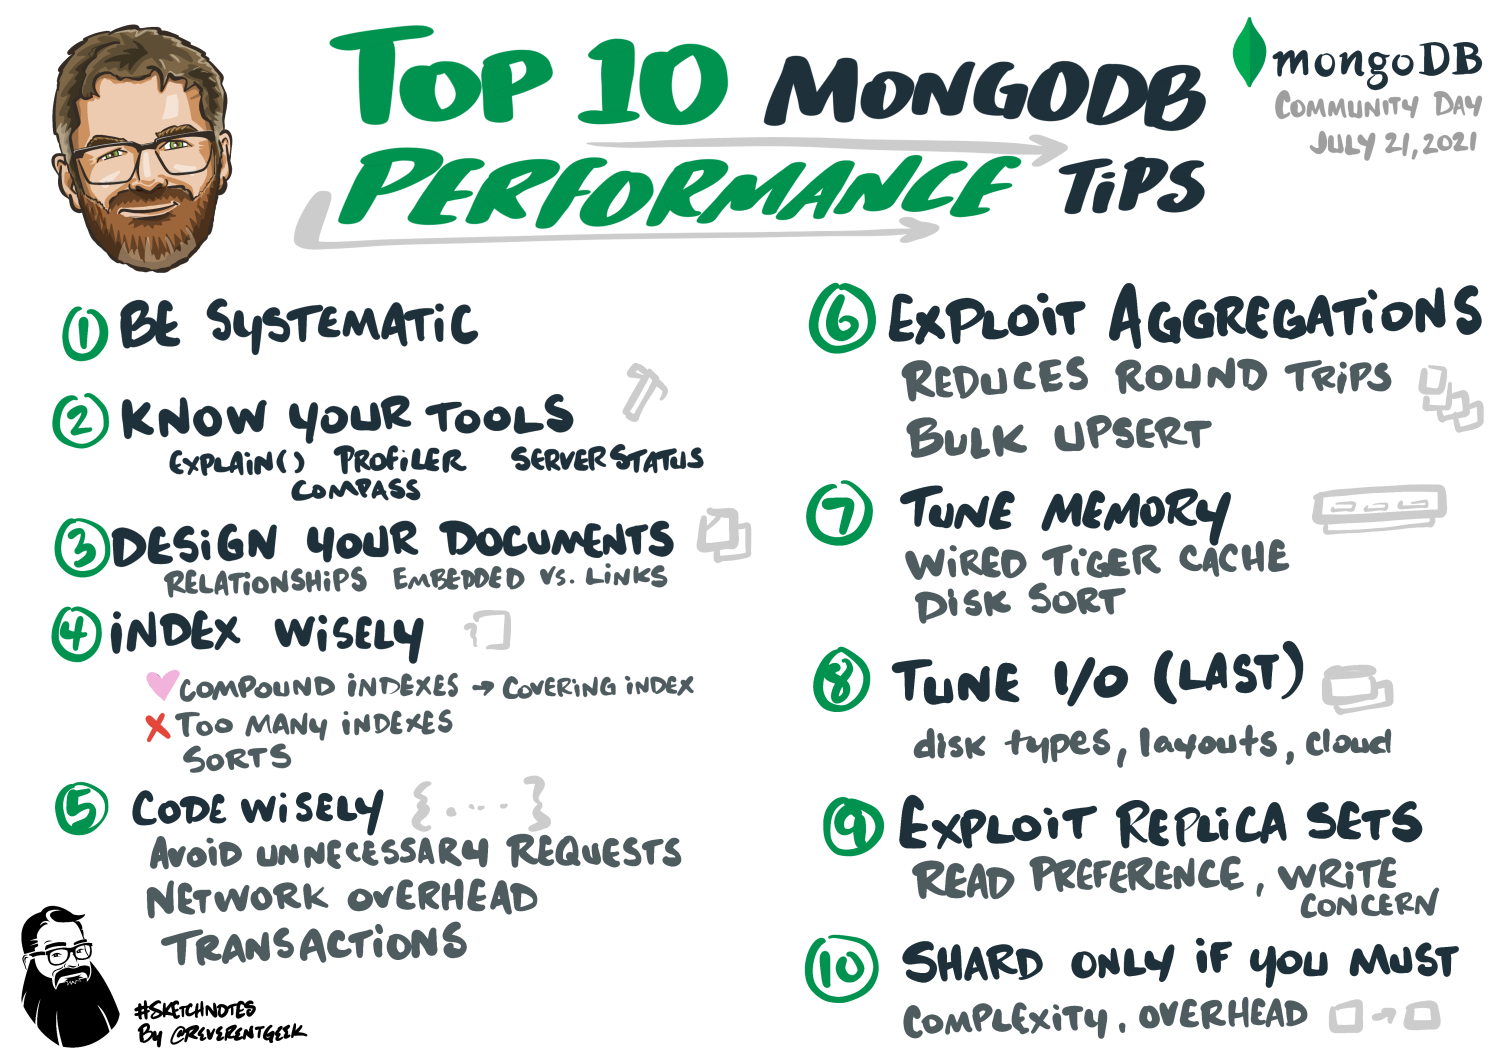 TOP 10 MONGODB
PERFORMANCE TIPS
mongoDB
COMMUNITY DAY
JULY 21, 2021
1 BE SYSTEMATIC
2 KNOW YOUR TOOLS
EXPLAIN() PROFILER SERVERSTATUS
COMPASS
3 DESIGN YOUR DOCUMENTS
RELATIONSHIPS EMBEDDED VS. LINKS
4 INDEX WISELY
COMPOUND INDEXES → COVERING INDEX
X TOO MANY INDEXES
SORTS
5 CODE WISELY {....}
AVOID UNNECESSARY REQUESTS
NETWORK OVERHEAD
TRANSACTIONS
#SKETCHNOTES
BY @REVERENTGEEK
6 EXPLOIT AGGREGATIONS
REDUCES ROUND TRIPS
BULK UPSERT
7 TUNE MEMORY
WIRED TIGER CACHE
DISK SORT
8 TUNE I/O (LAST)
disk types, layouts, cloud
9 EXPLOIT REPLICA SETS
READ PREFERENCE, WRITE
CONCERN
10 SHARD ONLY IF YOU MUST
COMPLEXITY, OVERHEAD